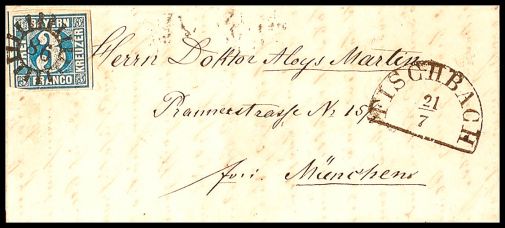 BAYERN
KREUZER
FRANCO
Herrn Doktor Aloys Martin
FISCHBACH
21
7
Prannerstrasse Nr 15/
frei. München